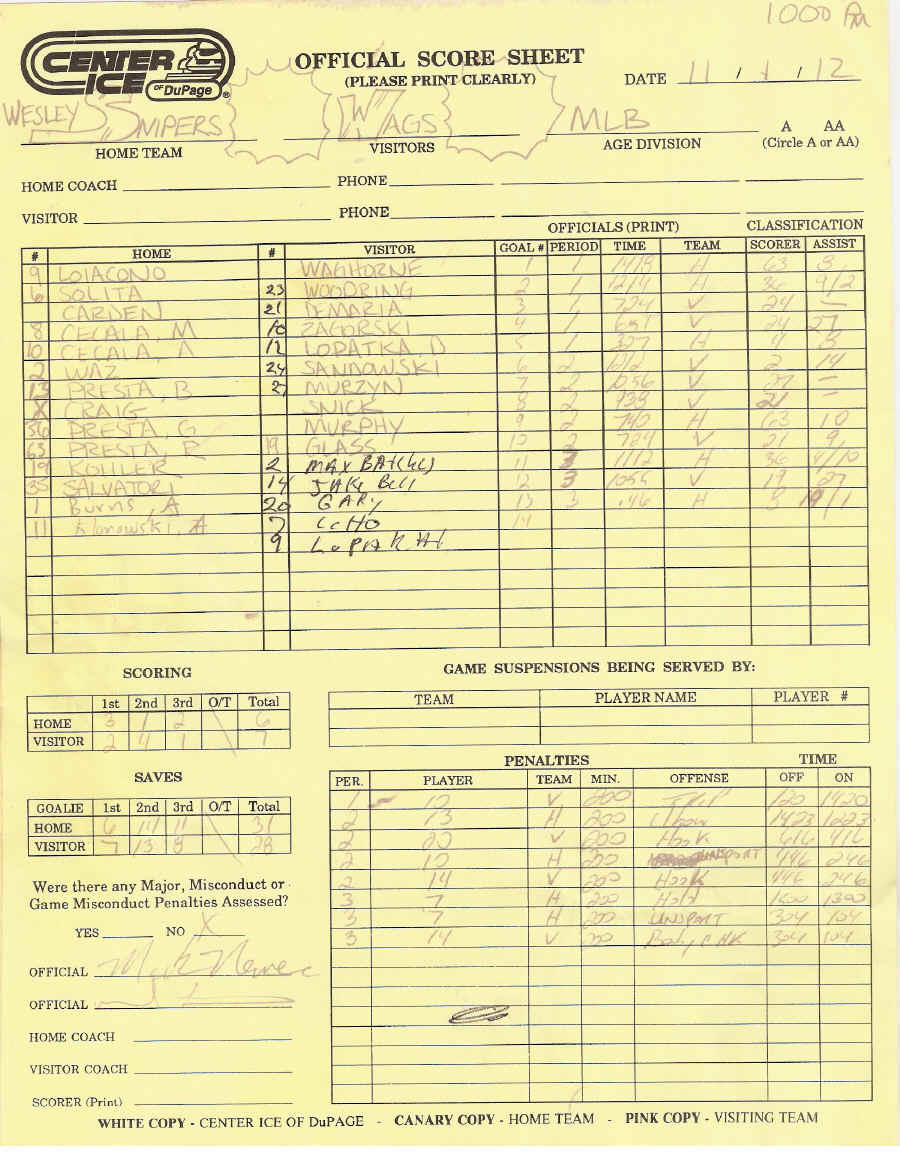 1000 PM
CENTER ICE OF DuPage ®
OFFICIAL SCORE SHEET
(PLEASE PRINT CLEARLY)
DATE 11 / 1 / 12
WESLEY SNIPERS WAGS MLB A AA
HOME TEAM VISITORS AGE DIVISION (Circle A or AA)
HOME COACH PHONE
VISITOR PHONE
OFFICIALS (PRINT) CLASSIFICATION
# HOME # VISITOR GOAL # PERIOD TIME TEAM SCORER ASSIST
9 LOIACONO WAGHORNE 1 1 1419 H 63 8
6 SOLITA 23 WOODRING 2 1 1214 H 36 9/2
CARDEN 21 DEMARIA 3 1 724 V 24 —
8 CECALA, M 10 ZAGORSKI 4 1 651 V 24 27
10 CECALA, A 12 LOPATKA, D 5 1 327 H 9 8
2 WAZ 24 SANDOWSKI 6 2 1012 V 2 14
13 PRESTA, B 27 MURZYN 7 2 1056 V 27 —
X CRAIG SNICK 8 2 938 V 21 —
36 PRESTA, G MURPHY 9 2 740 H 63 10
63 PRESTA, R 19 GLASS 10 2 724 V 21 9
19 KOHLER 2 MAX BATCHES 11 3 1112 H 36 9/10
35 SALVATORI 14 JAKE BELL 12 3 1055 V 19 27
1 Burns, A 20 GARY 13 3 .46 H 8 19/1
11 Klonowski, A 7 LCHO 14
9
SCORING
1st 2nd 3rd O/T Total
HOME 3 1 2 6
VISITOR 2 4 1 7
SAVES
GOALIE 1st 2nd 3rd O/T Total
HOME 6 14 11 31
VISITOR 7 13 8 28
Were there any Major, Misconduct or
Game Misconduct Penalties Assessed?
YES NO X
OFFICIAL
OFFICIAL
HOME COACH
VISITOR COACH
SCORER (Print)
GAME SUSPENSIONS BEING SERVED BY:
TEAM PLAYER NAME PLAYER #
PENALTIES TIME
PER. PLAYER TEAM MIN. OFFENSE OFF ON
1 12 V 200 TRIP 120 1420
2 13 H 200 Elbow 1423 1223
2 20 V 200 Hook 616 416
2 10 H 200 UNSPORT 446 246
2 14 V 200 Hook 446 246
3 7 H 200 Hold 1500 1300
3 7 H 200 UNSPORT 304 104
3 14 V 200 Body CHK 304 104
WHITE COPY - CENTER ICE OF DuPAGE - CANARY COPY - HOME TEAM - PINK COPY - VISITING TEAM